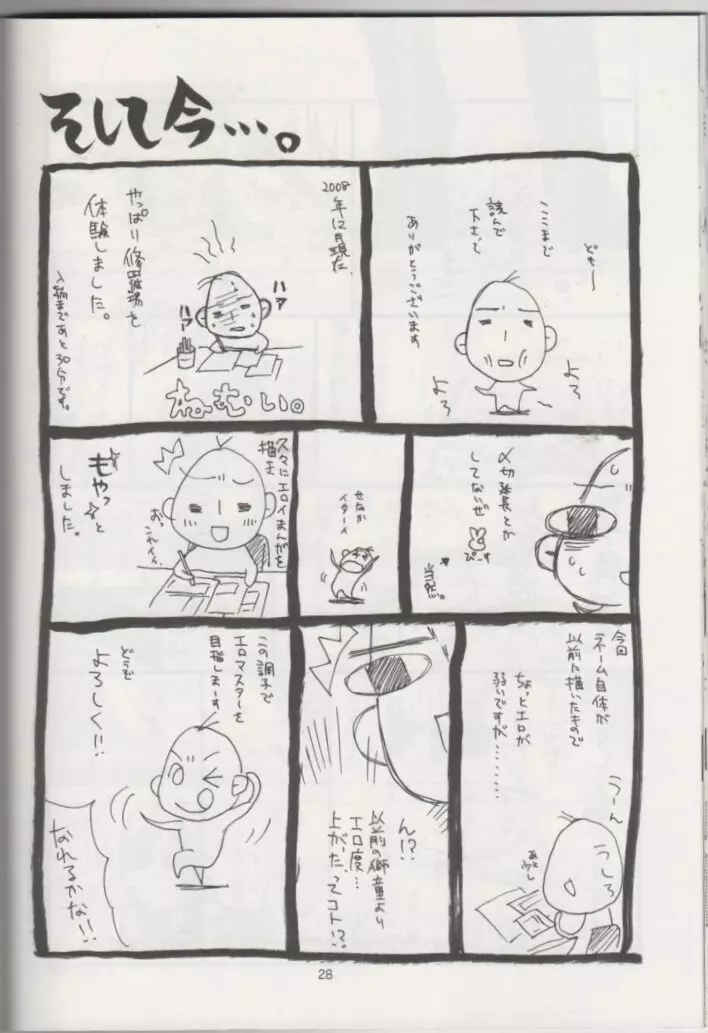 そして今…。
どもー
ここまで
読んで
下さって
ありがとうございます
よろ
よろ
2008年12月現在、
やっぱり修羅場を
体験しました。
入稿まであと30分です。
ハア
ハア
ねむい。
〆切延長とか
してないぜ
ぴーす
当然。
せなか
イターイ
久々にエロイまんがを
描き
お、
これイイ、
もやっと
しました。
今回
ネーム自体が
以前に描いたもので
ちょっとエロが
弱いですが………
うーん
うしろ
あと少し
ん!?
以前の獅童より
エロ度…
上がったってコト!?
この調子で
エロマスターを
目指しまーす
どうぞ
よろしく!!
なれるかな!!
28